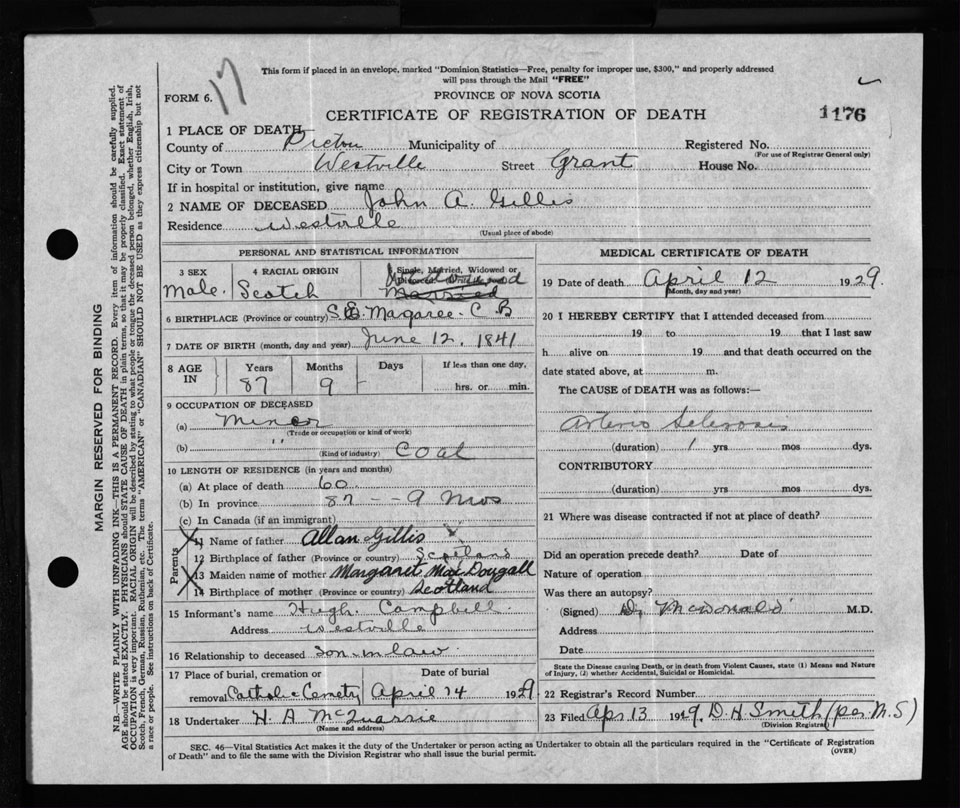 17
This form if placed in an envelope, marked "Dominion Statistics—Free, penalty for improper use, $300," and properly addressed
will pass through the Mail "FREE"
FORM 6.
PROVINCE OF NOVA SCOTIA
CERTIFICATE OF REGISTRATION OF DEATH
1176
1 PLACE OF DEATH
County of Pictou Municipality of Registered No.
(For use of Registrar General only)
City or Town Westville Street Grant House No.
If in hospital or institution, give name
2 NAME OF DECEASED John A. Gillis
Residence Westville
(Usual place of abode)
PERSONAL AND STATISTICAL INFORMATION
3 SEX 4 RACIAL ORIGIN Single, Married, Widowed or
Widowed
Male. Scotch Married
6 BIRTHPLACE (Province or country) S.E. Magaree. C B
7 DATE OF BIRTH (month, day and year) June 12, 1841
8 AGE IN Years Months Days If less than one day,
87 9 - hrs. or min.
9 OCCUPATION OF DECEASED
(a) Miner
(Trade or occupation or kind of work)
(b) " Coal
(Kind of industry)
10 LENGTH OF RESIDENCE (in years and months)
(a) At place of death 60
(b) In province 87 - - 9 Mos
(c) In Canada (if an immigrant)
Parents
11 Name of father Allan Gillis
12 Birthplace of father (Province or country) Scotland
13 Maiden name of mother Margaret MacDougall
14 Birthplace of mother (Province or country) Scotland
15 Informant's name Hugh Campbell.
Address Westville
16 Relationship to deceased Son in law.
17 Place of burial, cremation or Date of burial
removal Catholic Cemetry April 14 1929
18 Undertaker H. A McQuarrie
(Name and address)
MEDICAL CERTIFICATE OF DEATH
19 Date of death April 12 1929.
(Month, day and year)
20 I HEREBY CERTIFY that I attended deceased from
19 to 19 that I last saw
h alive on 19 and that death occurred on the
date stated above, at m.
The CAUSE of DEATH was as follows:—
Arterio Sclerosis
(duration) 1 yrs mos dys.
CONTRIBUTORY
(duration) yrs mos dys.
21 Where was disease contracted if not at place of death?
Did an operation precede death? Date of
Nature of operation
Was there an autopsy?
(Signed) D, McDonald M.D.
Address
Date
State the Disease causing Death, or in death from Violent Causes, state (1) Means and Nature
of Injury, (2) whether Accidental, Suicidal or Homicidal.
22 Registrar's Record Number
23 Filed Apr 13 1929. D. H Smith (per M.S)
(Division Registrar)
SEC. 46—Vital Statistics Act makes it the duty of the Undertaker or person acting as Undertaker to obtain all the particulars required in the "Certificate of Registration
of Death" and to file the same with the Division Registrar who shall issue the burial permit.
(OVER)
MARGIN RESERVED FOR BINDING
N.B.—WRITE PLAINLY WITH UNFADING INK—THIS IS A PERMANENT RECORD. Every item of information should be carefully supplied.
AGE should be stated EXACTLY. PHYSICIANS should STATE CAUSE OF DEATH in plain terms, so that it may be properly classified. Exact statement of
OCCUPATION is very important. RACIAL ORIGIN will be described by stating to what people or tongue the deceased person belonged, whether English, Irish,
Scotch, French, German, Russian, Ruthenian, etc. The terms "AMERICAN" or "CANADIAN" SHOULD NOT BE USED as they express citizenship but not
a race or people. See instructions on back of Certificate.